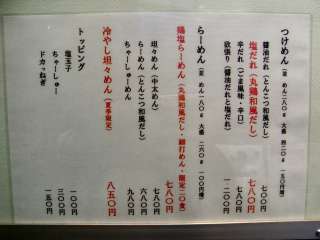 つけめん（並 めん二八〇g 大盛 四二〇g 一五〇円増）
醤油だれ（とんこつ和風だし） 七〇〇円
塩だれ（丸鶏和風だし） 七八〇円
辛だれ（ごま風味・辛口） 七八〇円
欲張り（醤油だれと塩だれ） 一二〇〇円
らーめん（並 めん一八〇g 大盛 二六〇g 一〇〇円増）
鶏塩らーめん（丸鶏和風だし・細打めん・限定二〇食） 七八〇円
坦々めん（中太めん） 七八〇円
らーめん（とんこつ和風だし） 六八〇円
ちゃーしゅーめん 九八〇円
冷やし坦々めん（夏季限定） 八五〇円
トッピング
塩玉子 一〇〇円
ちゃーしゅー 三〇〇円
ドカッねぎ 一五〇円